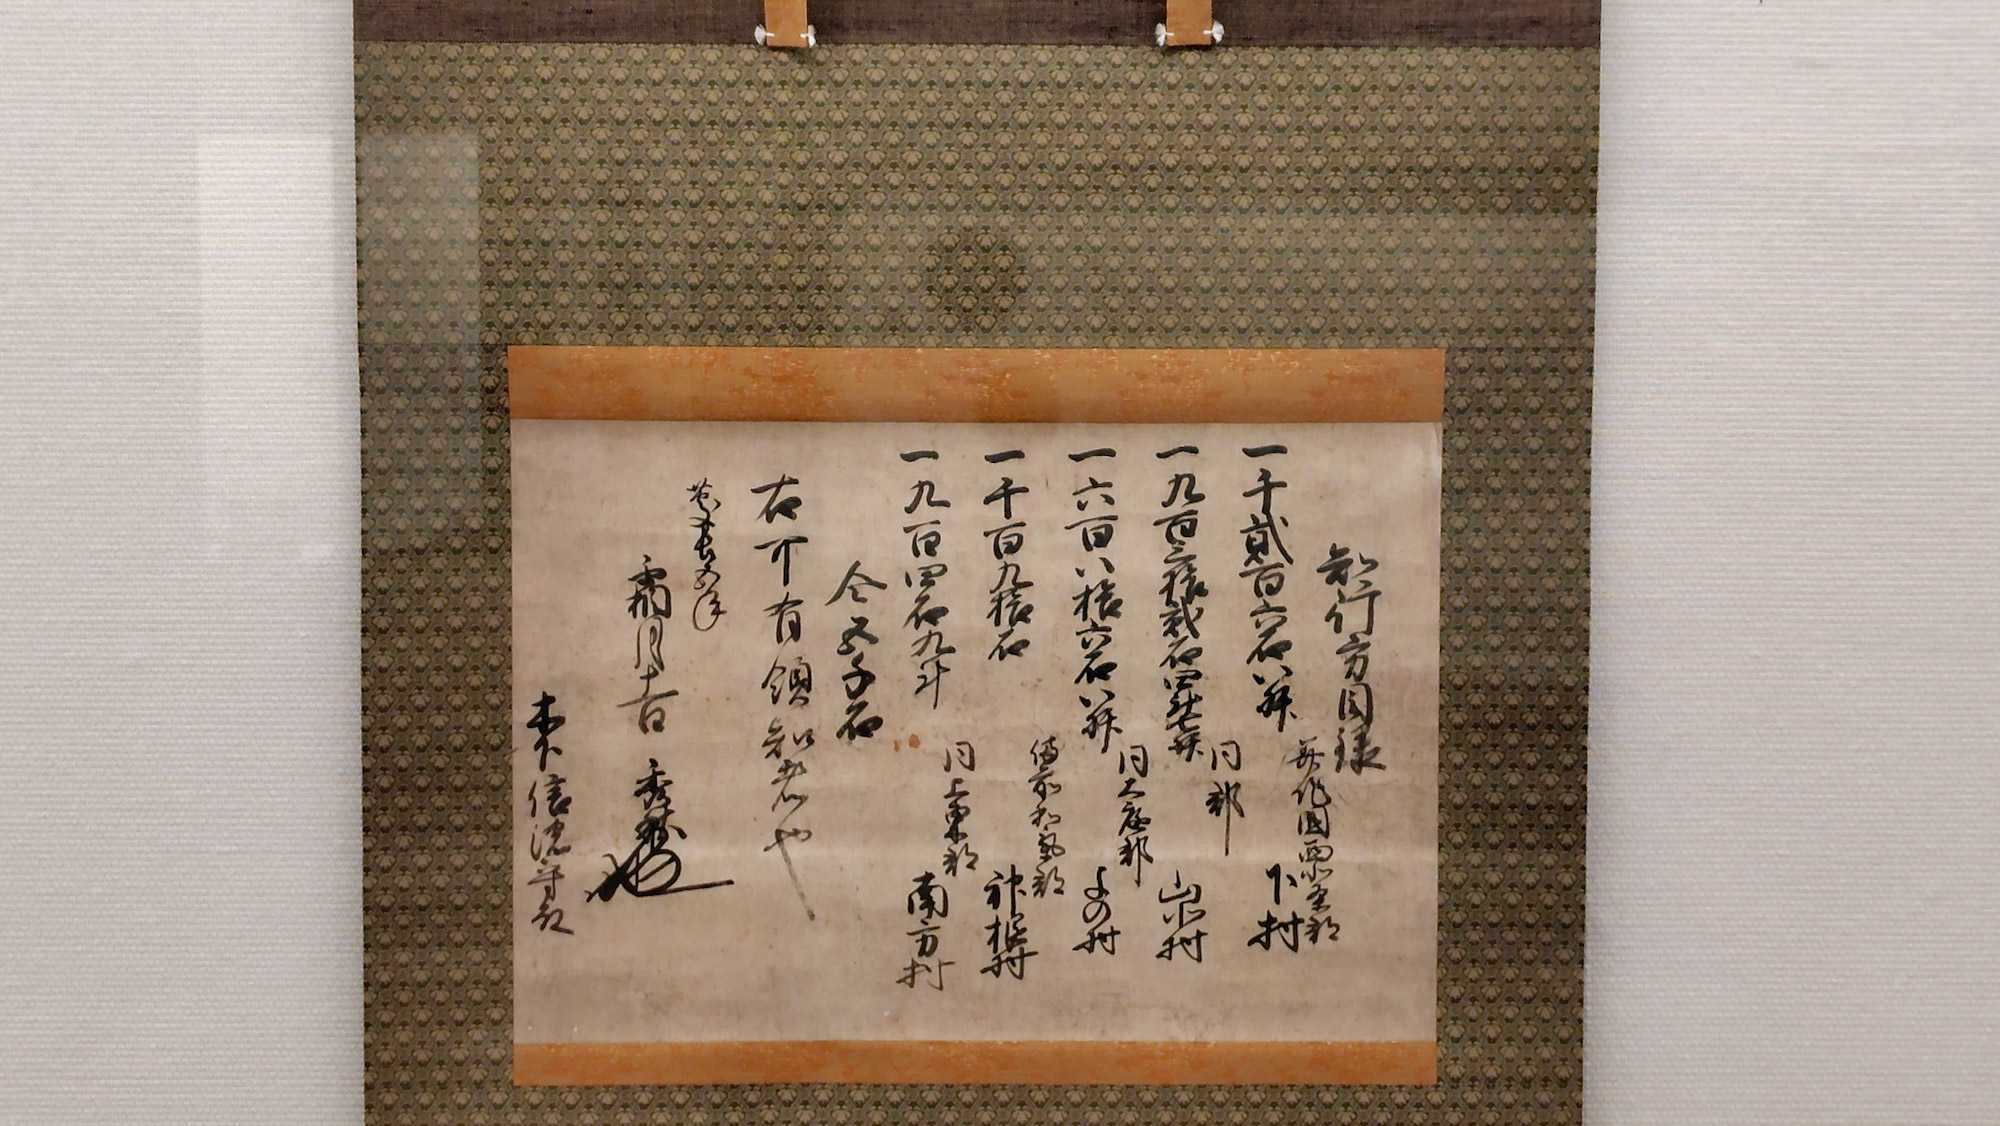 知行方目録
一千弐百六石八升 美作国西北条郡 下村
一九百三拾弐石四斗七升 同郡 山北村
一六百八拾六石八升 同大庭郡 よの村
一千百九拾石 備前和気郡 神根村
一九百四石九斗 同上東郡 南方村
合五千石
右可有領知者也
慶長五年
霜月十一日 秀秋
木下信濃守殿